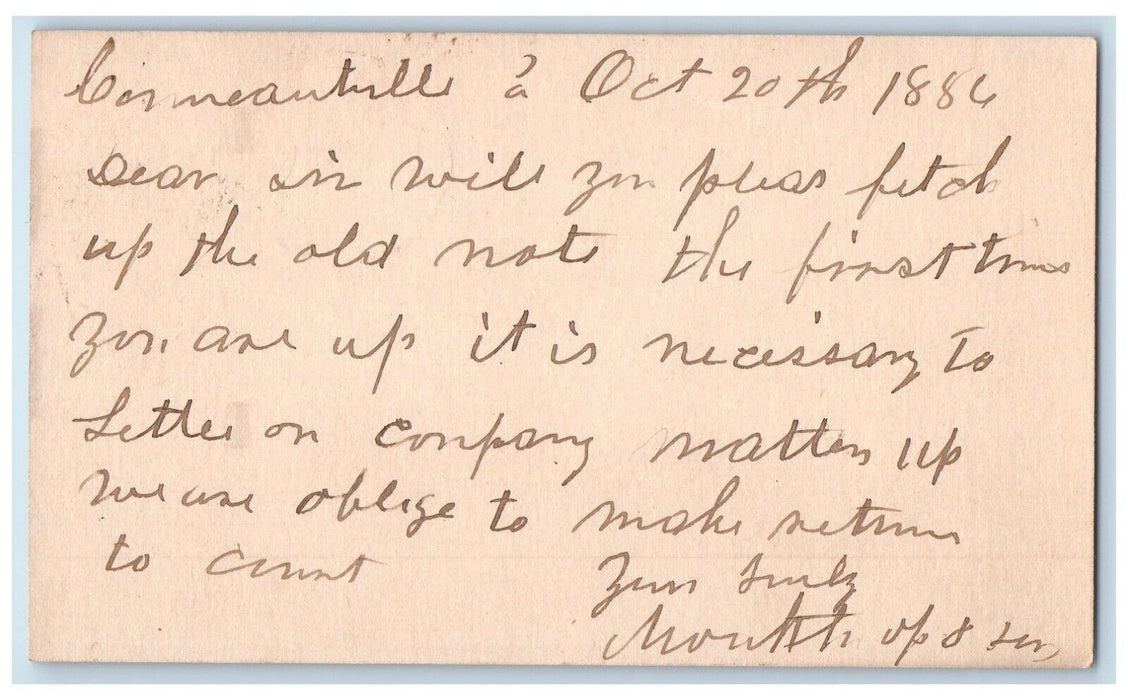 Oct 20th 1886
Dear sir will you pleas fetch
up the old note the first time
you are up it is necessary to
settle on company matters up
we are oblige to make returns
to court
Yours truly